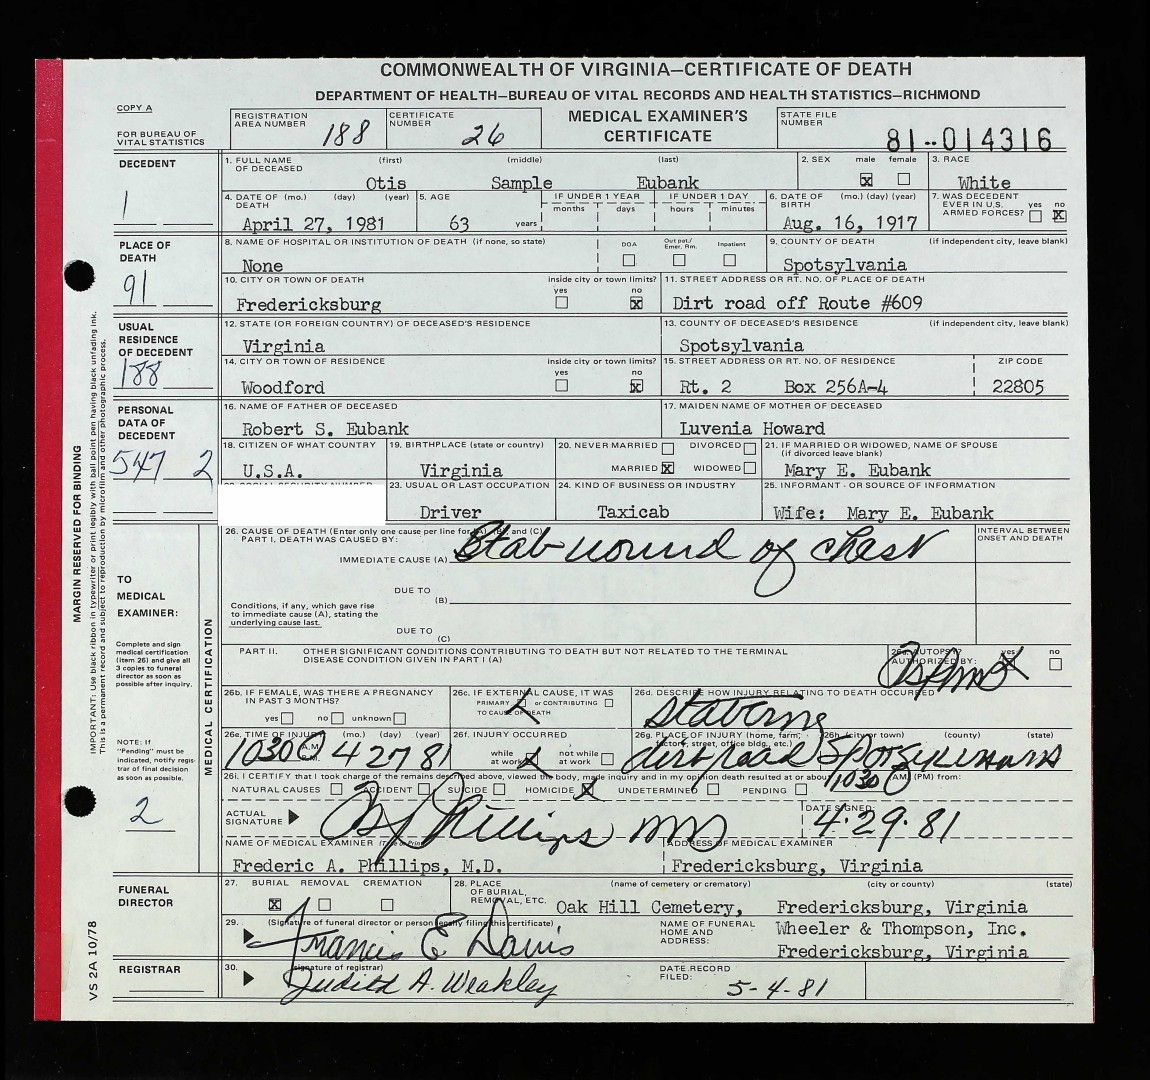 COMMONWEALTH OF VIRGINIA—CERTIFICATE OF DEATH
DEPARTMENT OF HEALTH—BUREAU OF VITAL RECORDS AND HEALTH STATISTICS—RICHMOND
COPY A
FOR BUREAU OF VITAL STATISTICS
REGISTRATION AREA NUMBER 188
CERTIFICATE NUMBER 26
MEDICAL EXAMINER'S CERTIFICATE
STATE FILE NUMBER 81--014316
DECEDENT
1
1. FULL NAME OF DECEASED (first) (middle) (last)
Otis Sample Eubank
2. SEX male female
x
3. RACE
White
4. DATE OF DEATH (mo.) (day) (year)
April 27, 1981
5. AGE
63 years
IF UNDER 1 YEAR
months days
IF UNDER 1 DAY
hours minutes
6. DATE OF BIRTH (mo.) (day) (year)
Aug. 16, 1917
7. WAS DECEDENT EVER IN U.S. ARMED FORCES? yes no
x
PLACE OF DEATH
91
8. NAME OF HOSPITAL OR INSTITUTION OF DEATH (if none, so state)
None
DOA Out pat/ Emer. Rm. Inpatient
9. COUNTY OF DEATH (if independent city, leave blank)
Spotsylvania
10. CITY OR TOWN OF DEATH inside city or town limits? yes no
Fredericksburg x
11. STREET ADDRESS OR RT. NO. OF PLACE OF DEATH
Dirt road off Route #609
USUAL RESIDENCE OF DECEDENT
188
12. STATE (OR FOREIGN COUNTRY) OF DECEASED'S RESIDENCE
Virginia
13. COUNTY OF DECEASED'S RESIDENCE (if independent city, leave blank)
Spotsylvania
14. CITY OR TOWN OF RESIDENCE inside city or town limits? yes no
Woodford x
15. STREET ADDRESS OR RT. NO. OF RESIDENCE ZIP CODE
Rt. 2 Box 256A-4 22805
PERSONAL DATA OF DECEDENT
547 2
16. NAME OF FATHER OF DECEASED
Robert S. Eubank
17. MAIDEN NAME OF MOTHER OF DECEASED
Luvenia Howard
18. CITIZEN OF WHAT COUNTRY
U.S.A.
19. BIRTHPLACE (state or country)
Virginia
20. NEVER MARRIED DIVORCED
MARRIED x WIDOWED
21. IF MARRIED OR WIDOWED, NAME OF SPOUSE (if divorced leave blank)
Mary E. Eubank
23. USUAL OR LAST OCCUPATION
Driver
24. KIND OF BUSINESS OR INDUSTRY
Taxicab
25. INFORMANT - OR SOURCE OF INFORMATION
Wife: Mary E. Eubank
MARGIN RESERVED FOR BINDING
IMPORTANT: Use black ribbon in typewriter or print legibly with ball point pen having black unfading ink.
This is a permanent record and subject to reproduction by microfilm and other photographic process.
TO MEDICAL EXAMINER:
Complete and sign medical certification (item 26) and give all 3 copies to funeral director as soon as possible after inquiry.
NOTE: If "Pending" must be indicated, notify registrar of final decision as soon as possible.
2
MEDICAL CERTIFICATION
26. CAUSE OF DEATH (Enter only one cause per line for (A), (B), and (C))
PART I. DEATH WAS CAUSED BY:
INTERVAL BETWEEN ONSET AND DEATH
IMMEDIATE CAUSE (A) Stab wound of chest
DUE TO (B)
Conditions, if any, which gave rise to immediate cause (A), stating the underlying cause last.
DUE TO (C)
PART II. OTHER SIGNIFICANT CONDITIONS CONTRIBUTING TO DEATH BUT NOT RELATED TO THE TERMINAL DISEASE CONDITION GIVEN IN PART I (A)
26a. AUTOPSY? yes no
AUTHORIZED BY:
26b. IF FEMALE, WAS THERE A PREGNANCY IN PAST 3 MONTHS?
yes no unknown
26c. IF EXTERNAL CAUSE, IT WAS
PRIMARY or CONTRIBUTING
TO CAUSE OF DEATH
26d. DESCRIBE HOW INJURY RELATING TO DEATH OCCURRED
stabbing
26e. TIME OF INJURY (mo.) (day) (year)
1030 A.M. P.M. 4 27 81
26f. INJURY OCCURRED
while at work not while at work
26g. PLACE OF INJURY (home, farm, factory, street, office bldg., etc.)
dirt road
26h. (city or town) (county) (state)
Spotsylvania
26i. I CERTIFY that I took charge of the remains described above, viewed the body, made inquiry and in my opinion death resulted at or about 1030 (AM) (PM) from:
NATURAL CAUSES ACCIDENT SUICIDE HOMICIDE x UNDETERMINED PENDING
ACTUAL SIGNATURE Phillips MD
DATE SIGNED: 4-29-81
NAME OF MEDICAL EXAMINER (Type or Print)
Frederic A. Phillips, M.D.
ADDRESS OF MEDICAL EXAMINER
Fredericksburg, Virginia
FUNERAL DIRECTOR
27. BURIAL REMOVAL CREMATION
x
28. PLACE OF BURIAL, REMOVAL, ETC. (name of cemetery or crematory) (city or county) (state)
Oak Hill Cemetery, Fredericksburg, Virginia
29. (Signature of funeral director or person legally filing this certificate)
Francis E Davis
NAME OF FUNERAL HOME AND ADDRESS:
Wheeler & Thompson, Inc.
Fredericksburg, Virginia
REGISTRAR
30. (signature of registrar)
Judith A. Weakley
DATE RECORD FILED: 5-4-81
VS 2A 10/78